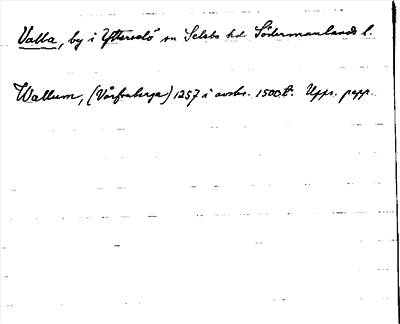 Valla, by i Ytterselö sn Selebo hd Södermanlands l.
Wallum, (Vårfruberga) 1257 i avskr. 1500 t. Uppr. papp.